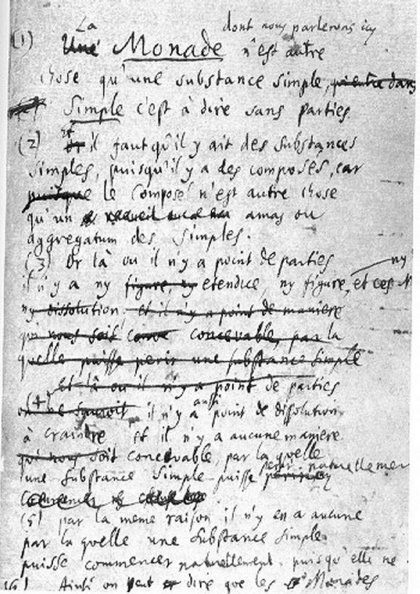 La dont nous parlerons icy
(1) Une Monade n'est autre
chose qu'une substance simple, qui entre dans
Simple c'est à dire sans parties
(2) et il faut qu'il y ait des substances
simples, puisqu'il y a des composés, car
puisque le composé n'est autre chose
qu'un amas ou
aggregatum des simples.
(3) Or là ou il n'y a point de parties ny
il n'y a ny figure, ny etendue, ny figure, et
ny dissolution. et il n'y a point de maniere
qui nous soit concevable, par la
quelle puisse perir une substance simple
Et là ou il n'y a point de parties
(4) il n'y a aussi point de dissolution
à craindre et il n'y a aucune maniere
qui nous soit concevable, par la quelle
une substance simple puisse perir naturellement
(5) par la meme raison il n'y en a aucune
par la quelle une substance simple
puisse commencer naturellement, puisqu'elle ne
(6) Ainsi on peut dire que les Monades